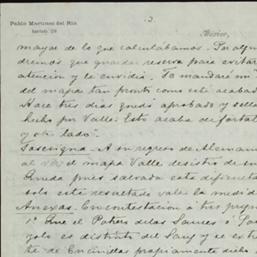 Pablo Martinez del Rio
2.
Mexico,
mayor de lo que calculábamos. Por algun
dremos que guardar reserva para evitar
atencion y la envidia. Te mandaré un
del mapa tan pronto como esté acabad
Hace tres dias quedó aprobado y sella
hecho por Valle. Esto acaba de fortal
y otro lado".
A su regreso de Alemania
al ver el mapa Valle desistió de su
Queda pues salvada esta dificultad
solo este resultado vale la medida
Anexas. En contestacion á tus preg
1ª Que el Potrero de los Sauces ó Sau
zolo es distinto del Sauz y se extie
te de Encinillas propiamente dicho